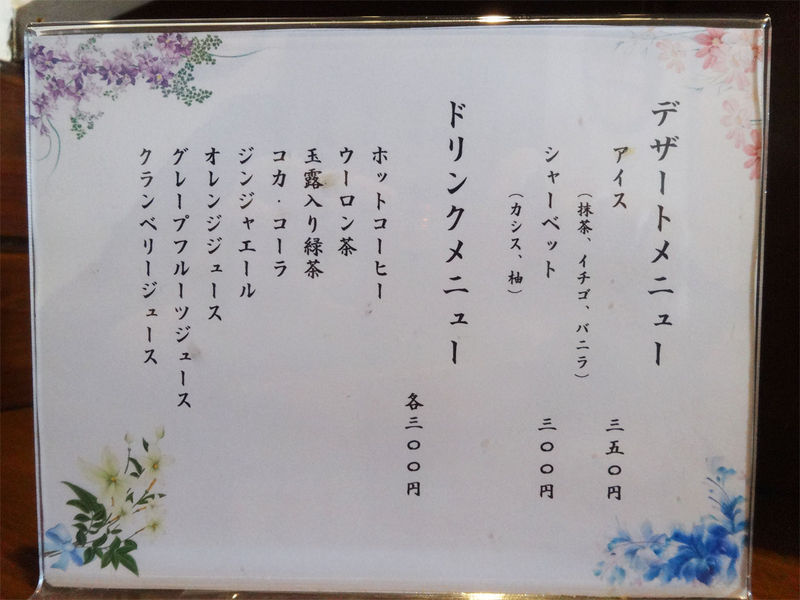 デザートメニュー
アイス 三五〇円
(抹茶、イチゴ、バニラ)
シャーベット 三〇〇円
(カシス、柚)
ドリンクメニュー
各三〇〇円
ホットコーヒー
ウーロン茶
玉露入り緑茶
コカ・コーラ
ジンジャエール
オレンジジュース
グレープフルーツジュース
クランベリージュース